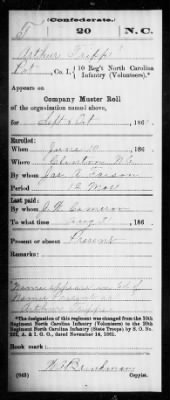 (Confederate.)
T 20 N. C.
Arthur Tripp
Pvt, Co. I, 10 Reg't North Carolina
Infantry (Volunteers).*
Appears on
Company Muster Roll
of the organization named above,
for Sept & Oct, 186
Enrolled:
When June 10, 186
Where Clinton N.C.
By whom Jas. A. Faison
Period 12 Mos
Last paid:
By whom Cameron
To what time Aug 31, 186
Present or absent Present
Remarks:
Name appears on
as
*The designation of this regiment was changed from the 10th
Regiment North Carolina Infantry (Volunteers) to the 20th
Regiment North Carolina Infantry (State Troops) by S. O. No.
222, A. & I. G. O., dated November 14, 1861.
Book mark:
(642) Copyist.